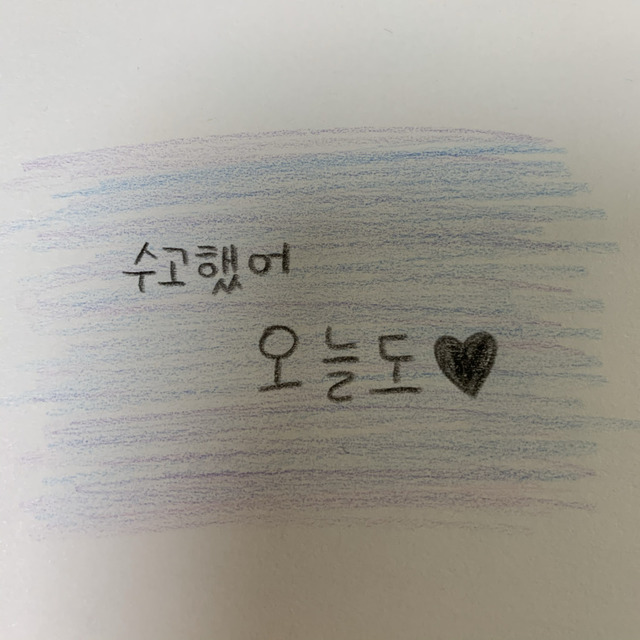 수고했어
오늘도♥